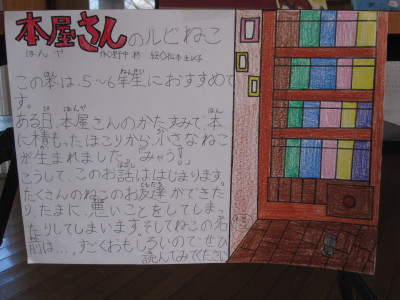 本屋さんのルビねこ
ほんや 作◎野中 柊 絵◎松本圭以子
この本は、5〜6年生におすすめで
す。
ある日、本屋さんのかたすみで、本
に積もったほこりから、小さなねこ
が生まれました。「みゃう!」
こうして、このお話ははじまります。
たくさんのねこのお友達ができた
り、たまに、悪いことをしてしまっ
たりしてしまいます。そしてねこの名
前は…、すごくおもしろいので、ぜひ
読んでみてください